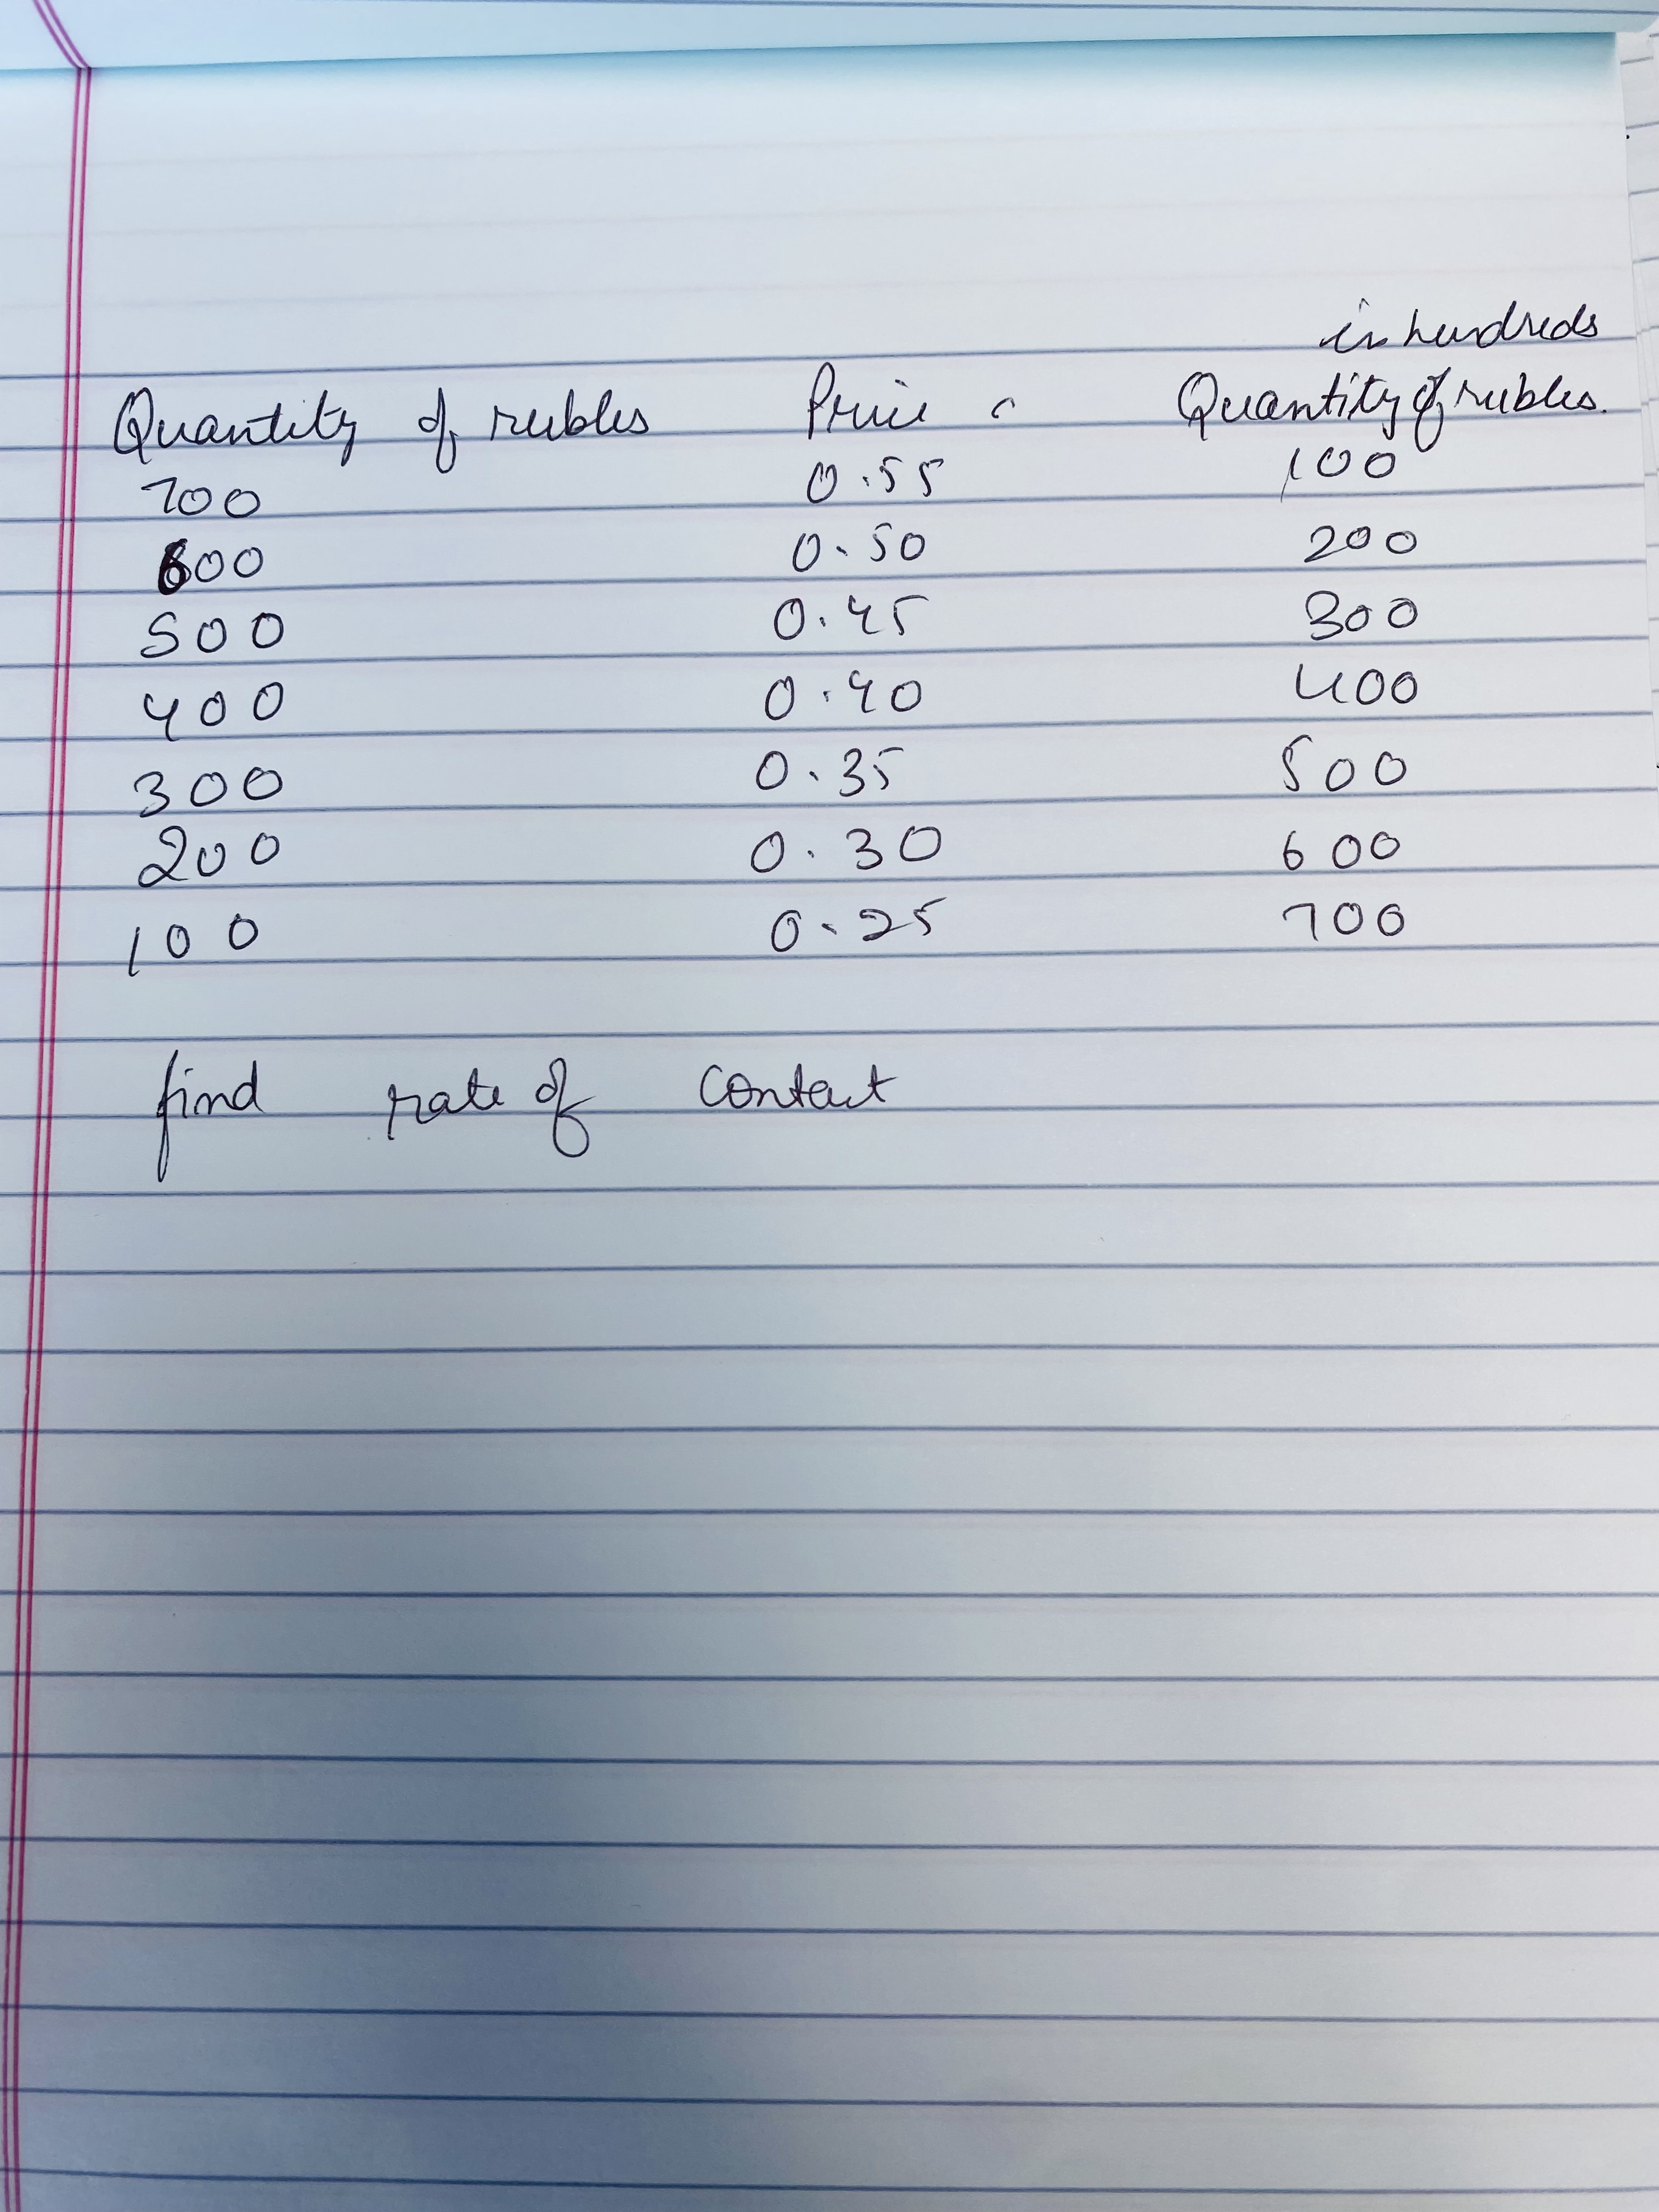 in hundreds
Quantity of rubles Price Quantity of rubles.
700 0.55 100
600 0.50 200
500 0.45 300
400 0.40 400
300 0.35 500
200 0.30 600
100 0.25 700
find rate of